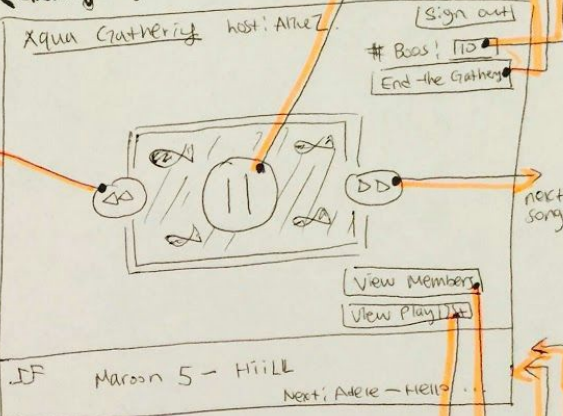 Aqua Gatheriy host: AlueZ
Sign out
# Boos! 10
End the Gatherg
next
song
View Members
View Playlist
Maroon 5 - HiiLL
Next: Adele - Hello ...